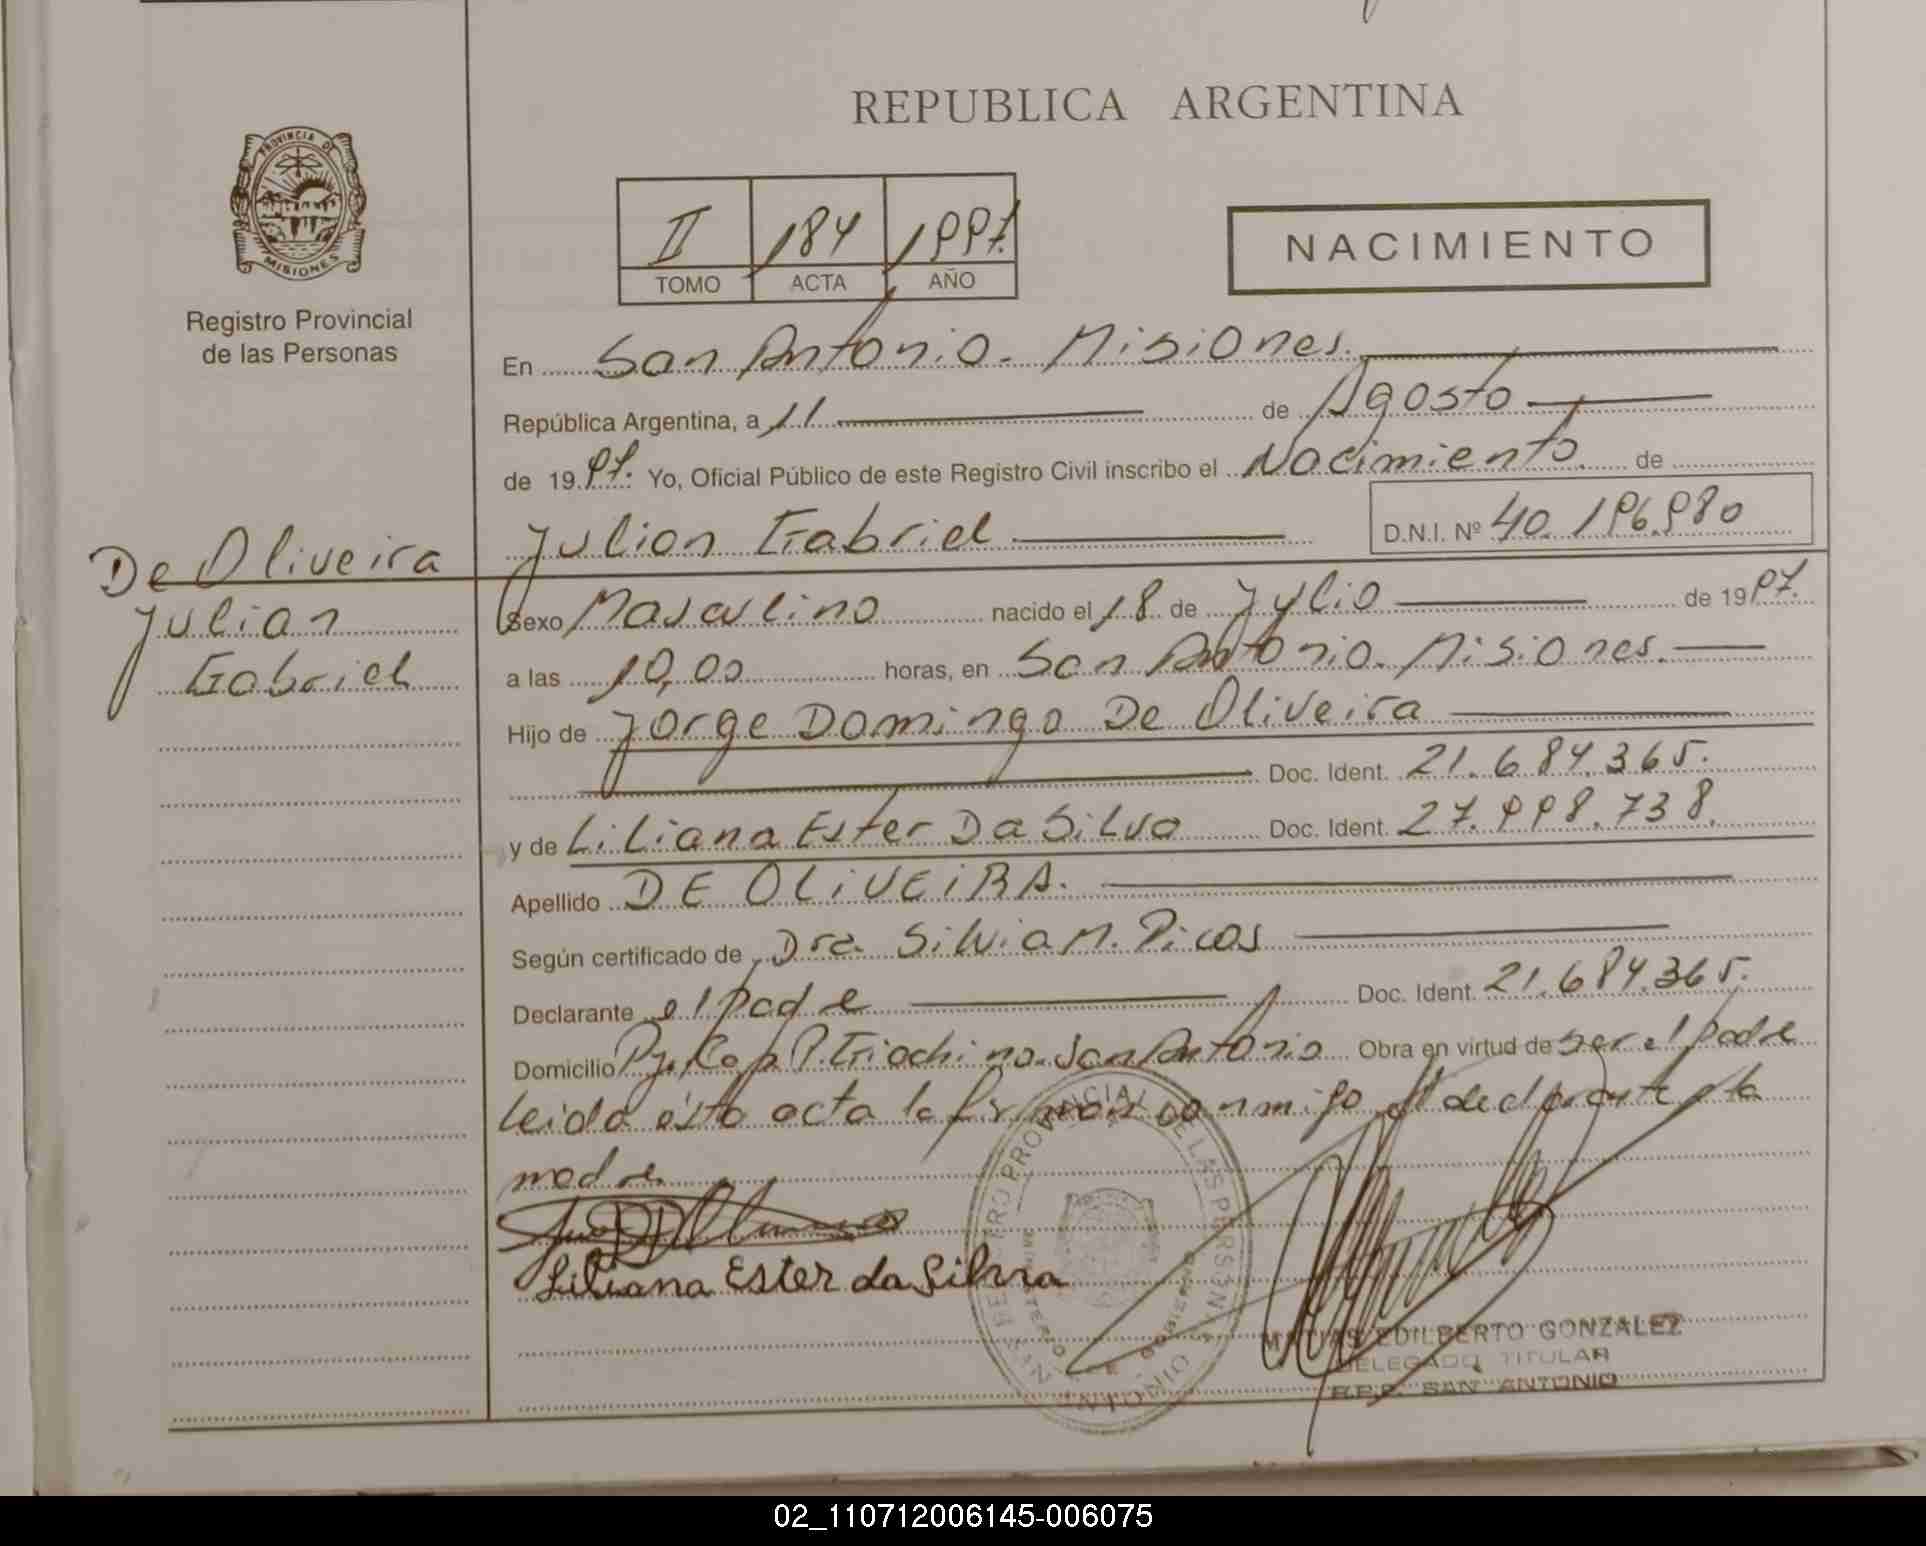 REPUBLICA ARGENTINA
PROVINCIA DE
MISIONES
Registro Provincial
de las Personas
II 184 1997.
TOMO ACTA AÑO
NACIMIENTO
En San Antonio. Misiones.
República Argentina, a 11 de Agosto
de 1997. Yo, Oficial Público de este Registro Civil inscribo el Nacimiento de
Julian Gabriel D.N.I. Nº 40.196.980
De Oliveira
Julian
Gabriel
Sexo Masculino nacido el 18 de Julio de 1997.
a las 10,00 horas, en San Antonio. Misiones.
Hijo de Jorge Domingo De Oliveira
Doc. Ident. 21.684.365.
y de Liliana Ester Da Silva Doc. Ident. 27.998.738.
Apellido DE OLIVEIRA.
Según certificado de Dra. Silvia M. Picas
Declarante el padre Doc. Ident. 21.684.365.
Domicilio San Antonio Obra en virtud de ser el padre
Leida ésta acta la firman conmigo el declarante y la
madre.
Liliana Ester da Silva
REGISTRO PROVINCIAL DE LAS PERSONAS
SAN ANTONIO
MATIAS EDILBERTO GONZALEZ
DELEGADO TITULAR
R.P.P. SAN ANTONIO
02_110712006145-006075